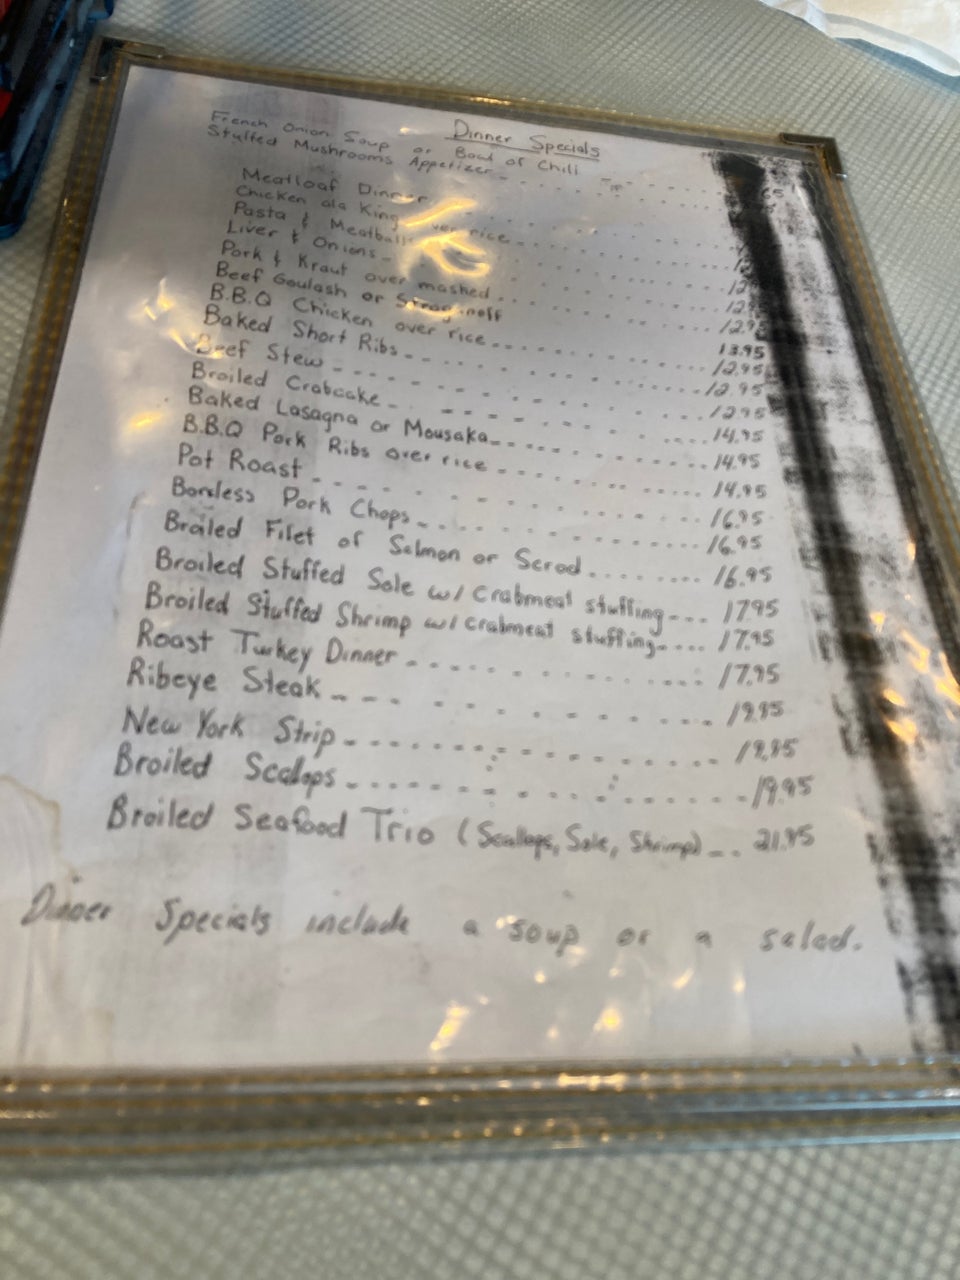 Dinner Specials
French Onion Soup or Bowl of Chili
Stuffed Mushrooms Appetizer
Meatloaf Dinner
Chicken ala King over rice
Pasta & Meatballs
Liver & Onions
Pork & Kraut over mashed
Beef Goulash or Stroganoff
B.B.Q Chicken over rice 13.95
Baked Short Ribs 12.95
Beef Stew 12.95
Broiled Crabcake 12.95
Baked Lasagna or Mousaka 14.95
B.B.Q Pork Ribs over rice 14.95
Pot Roast 14.95
Bonless Pork Chops 16.95
Broiled Filet of Salmon or Scrod 16.95
Broiled Stuffed Sole w/ Crabmeat stuffing 17.95
Broiled Stuffed Shrimp w/ crabmeat stuffing 17.95
Roast Turkey Dinner 17.95
Ribeye Steak 19.95
New York Strip 19.95
Broiled Scallops 19.95
Broiled Seafood Trio (Scallops, Sole, Shrimp) 21.95
Dinner Specials include a soup or a salad.